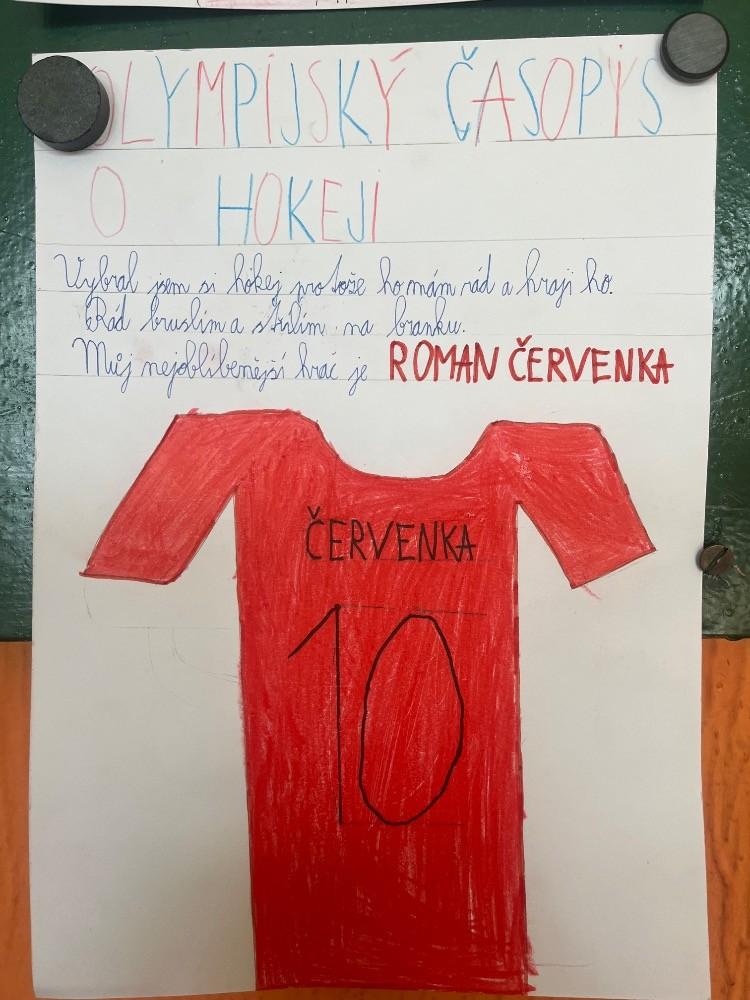 OLYMPIJSKÝ ČASOPYS
O HOKEJI
Vybral jsem si hokej protože ho mám rád a hraji ho.
Rád bruslím a střílím na branku.
Můj nejoblíbenější hráč je ROMAN ČERVENKA
ČERVENKA
10